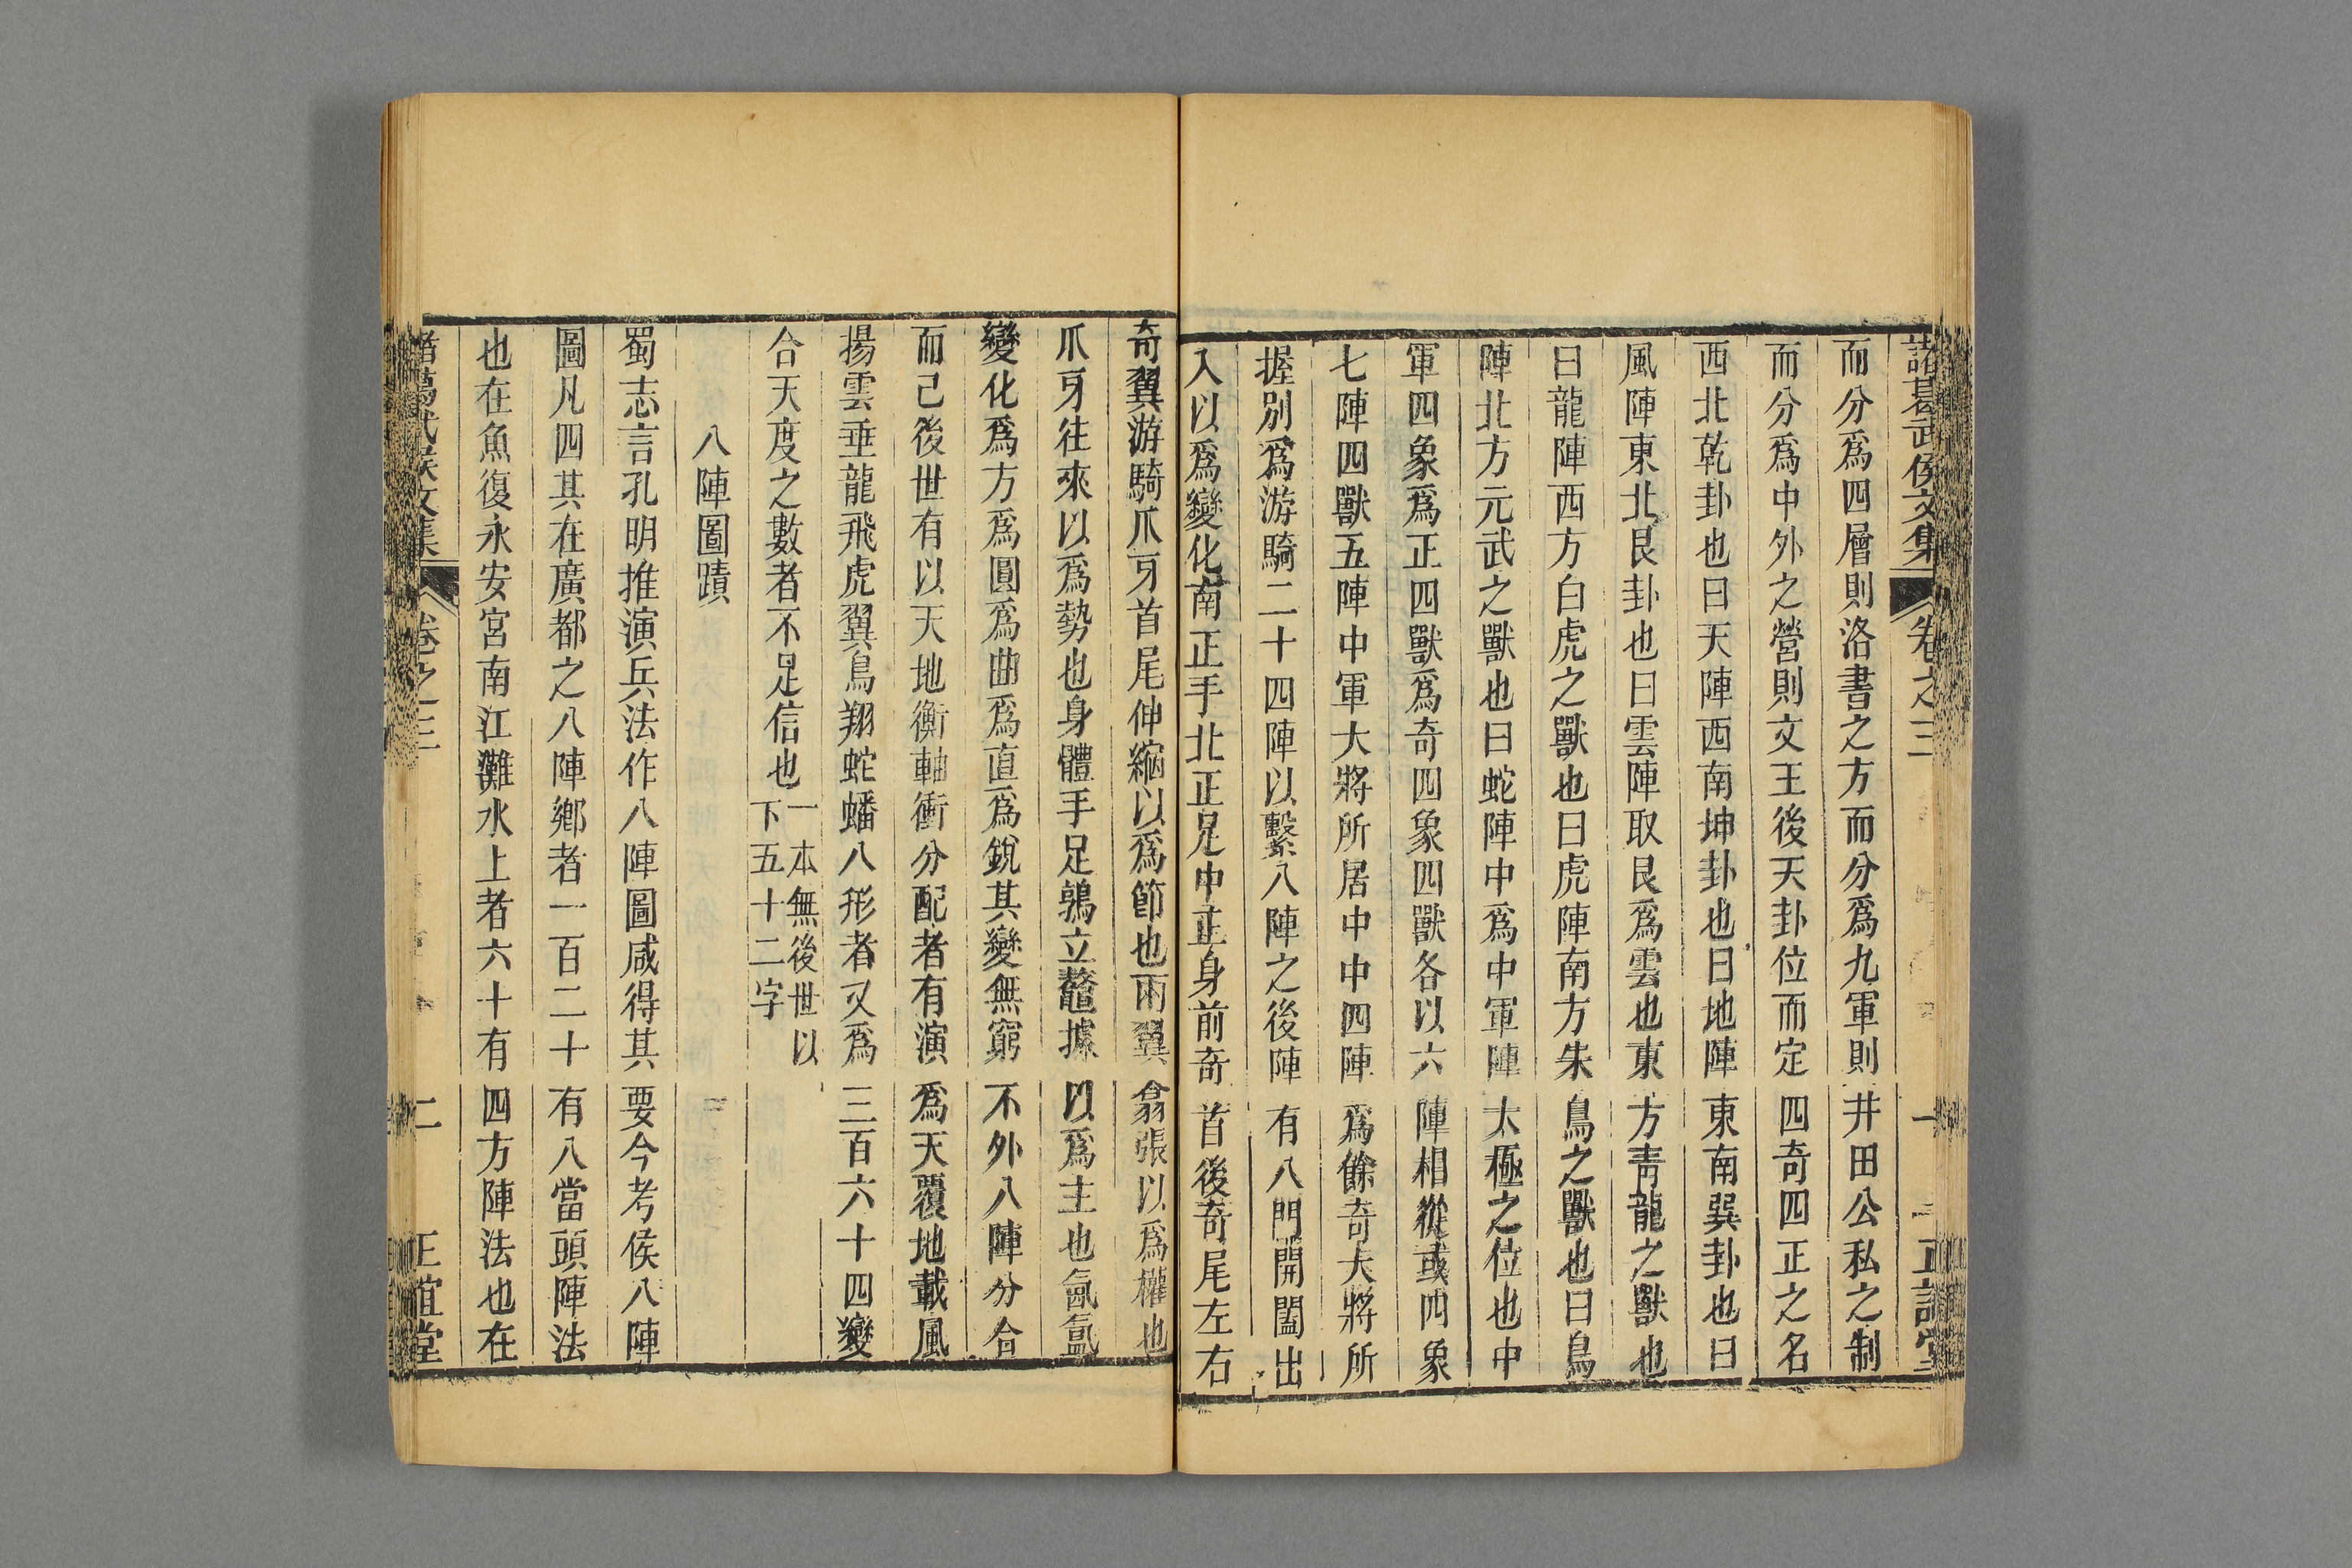 諸葛武侯文集 卷之三 一 正誼堂
而分爲四層則洛書之方而分爲九軍則井田公私之制
而分爲中外之營則文王後天卦位而定四奇四正之名
西北乾卦也曰天陣西南坤卦也曰地陣東南巽卦也曰
風陣東北艮卦也曰雲陣取艮爲雲也東方靑龍之獸也
曰龍陣西方白虎之獸也曰虎陣南方朱鳥之獸也曰鳥
陣北方元武之獸也曰蛇陣中爲中軍陣太極之位也中
軍四象爲正四獸爲奇四象四獸各以六陣相從或四象
七陣四獸五陣中軍大將所居中中四陣爲餘奇大將所
握別爲游騎二十四陣以繫八陣之後陣有八門開闔出
入以爲變化南正手北正足中正身前奇首後奇尾左右
奇翼游騎爪牙首尾伸縮以爲節也兩翼翕張以爲權也
爪牙往來以爲勢也身體手足鶉立鼇據以爲主也氤氳
變化爲方爲圓爲曲爲直爲銳其變無窮不外八陣分合
而已後世有以天地衡軸衝分配者有演爲天覆地載風
揚雲垂龍飛虎翼鳥翔蛇蟠八形者又爲三百六十四變
合天度之數者不足信也一本無後世以
下五十二字
八陣圖蹟
蜀志言孔明推演兵法作八陣圖咸得其要今考侯八陣
圖凡四其在廣都之八陣鄉者一百二十有八當頭陣法
也在魚復永安宮南江灘水上者六十有四方陣法也在
諸葛武侯文集 卷之三 二 正誼堂